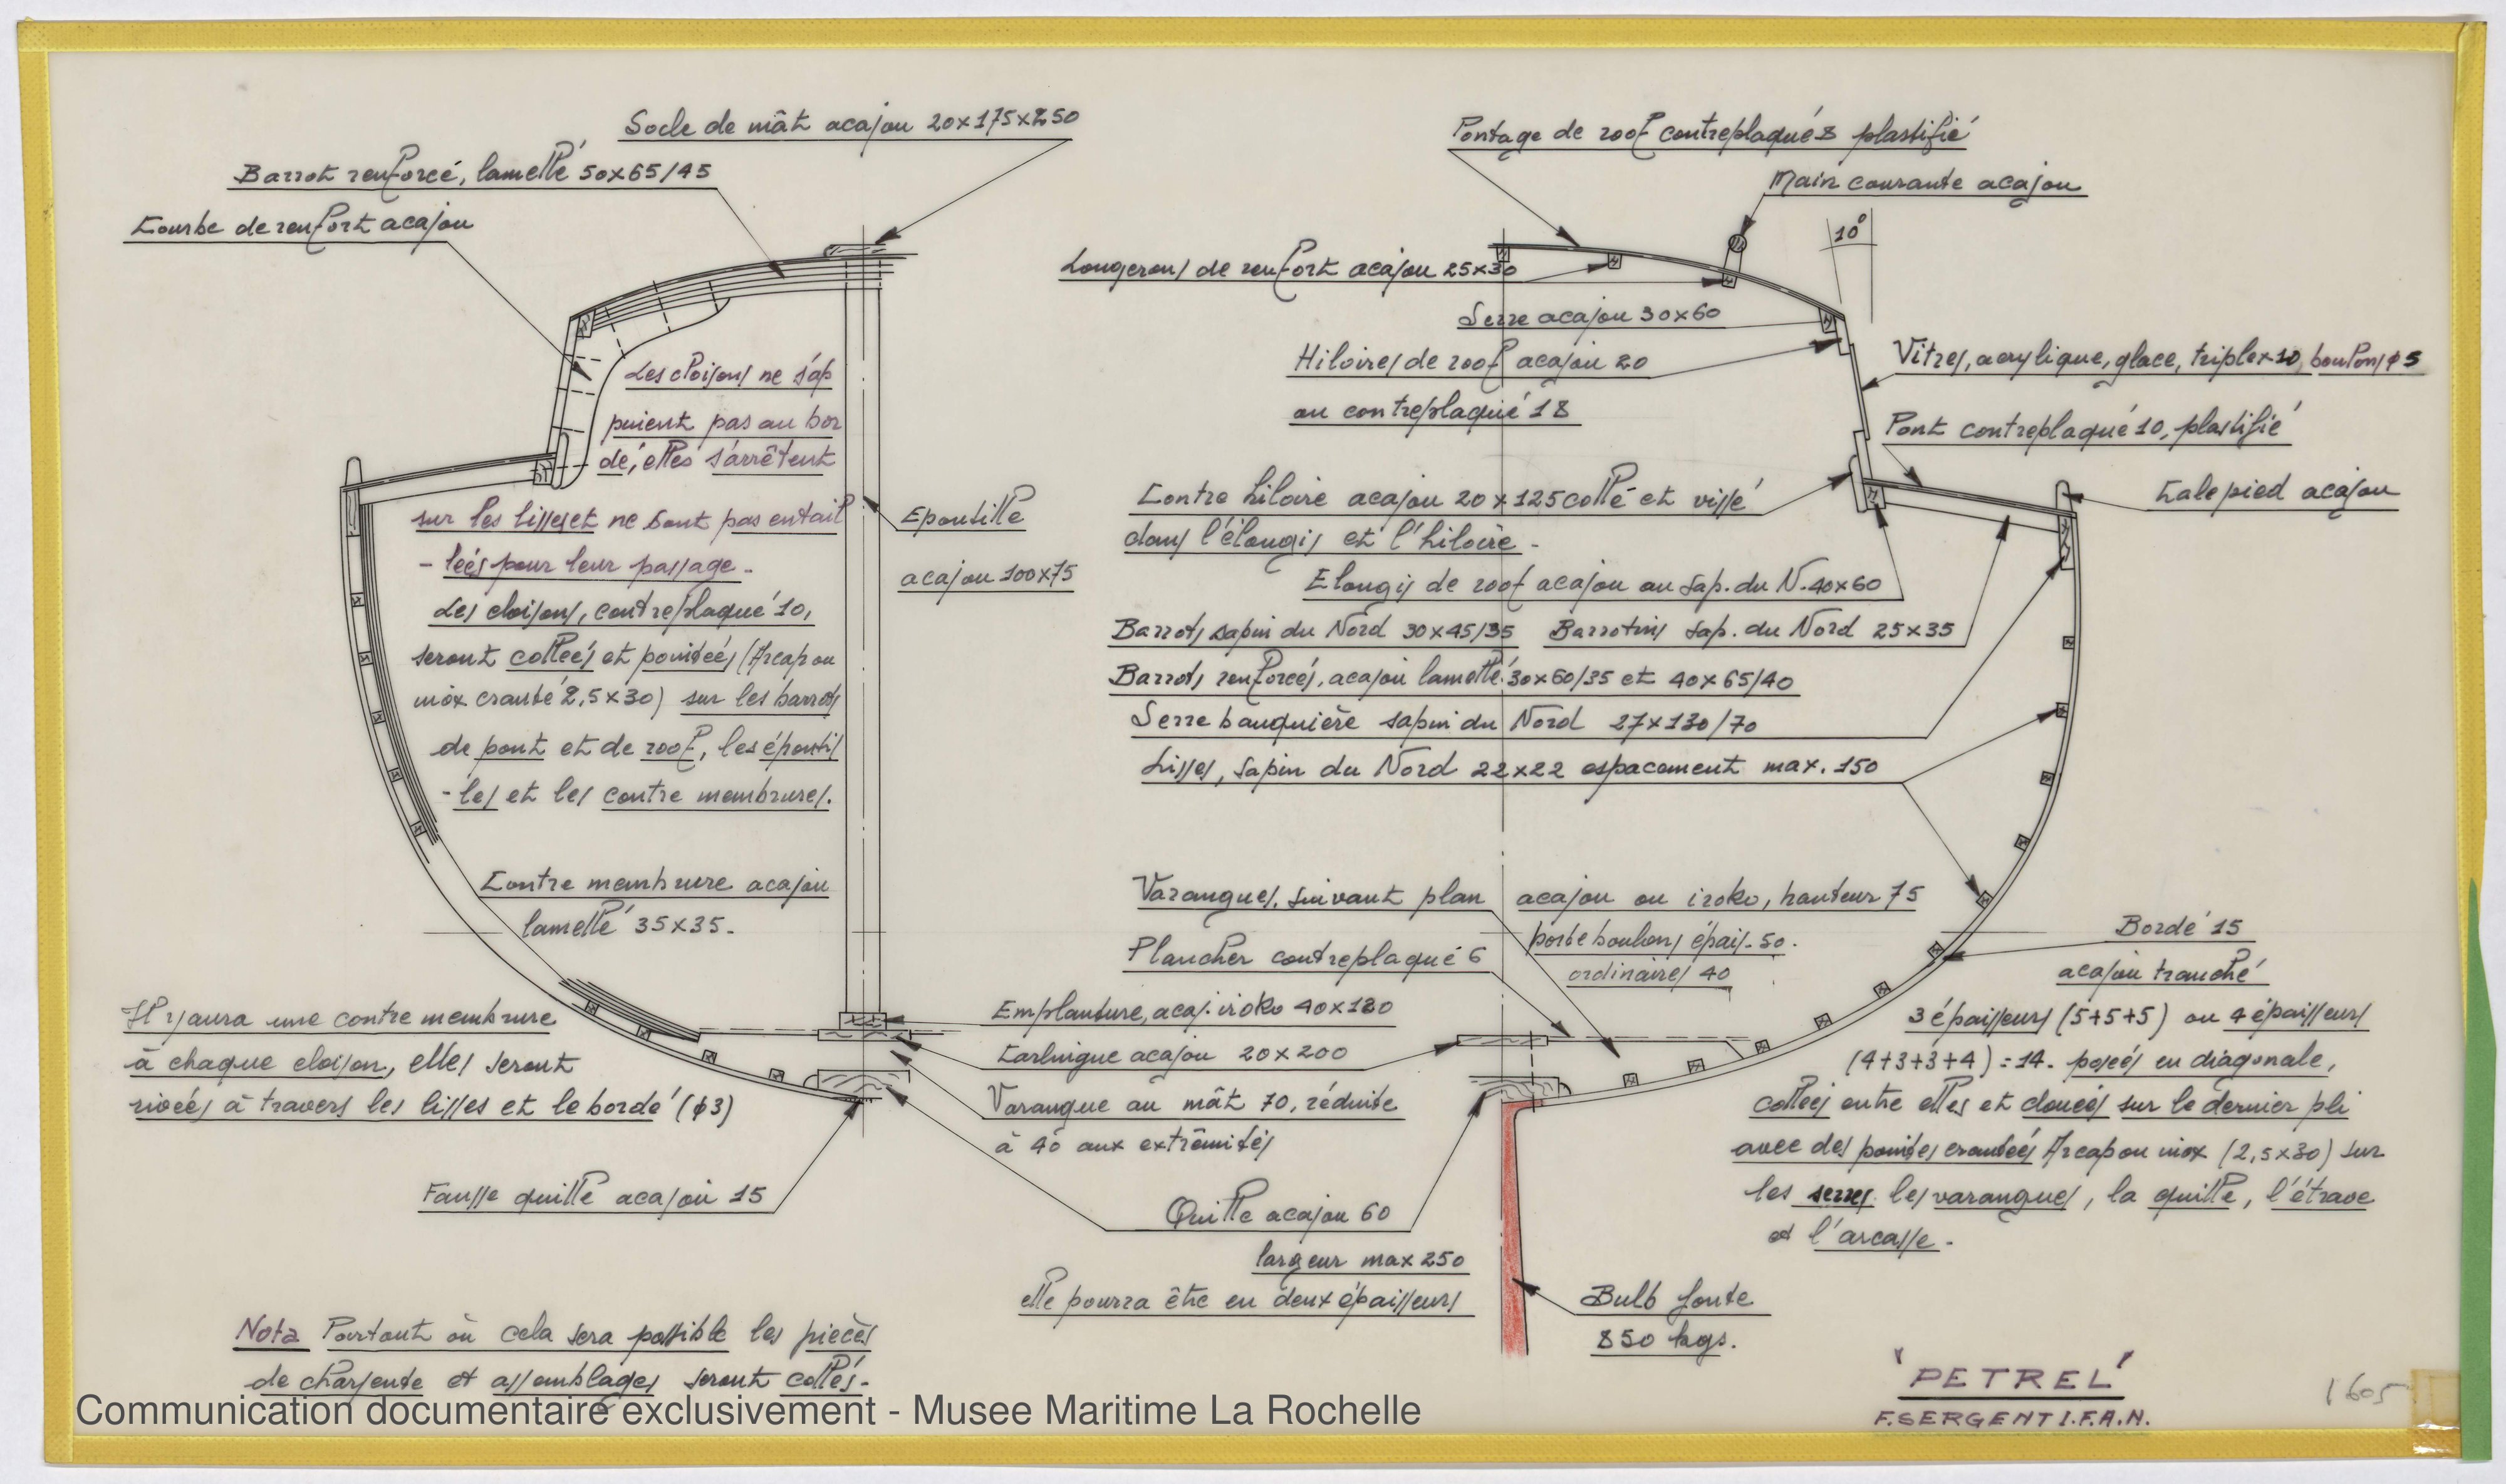 Socle de mât acajou 20x175x250
Barrot renforcé, lamellé 50x65/45
Courbe de renfort acajou
Les cloisons ne s'ap
puient pas au bor
dé, elles s'arrêtent
sur les lisses et ne sont pas entail
- lées pour leur passage -
Les cloisons, contreplaqué 10,
seront collées et pointées (Arcap ou
inox cranté 2,5x30) sur les barrots
de pont et de roof, les épontil
- les et les contre membrures.
Epontille
acajou 100x75
Contre membrure acajou
lamellé 35x35.
Il y aura une contre membrure
à chaque cloison, elles seront
rivées à travers les lisses et le bordé (ϕ3)
Fausse quille acajou 15
Nota Partout où cela sera possible les pièces
de charpente et assemblages seront collés-
Pontage de roof contreplaqué 8 plastifié
Main courante acajou
10°
Longerons de renfort acajou 25x30
Serre acajou 30x60
Hiloires de roof acajou 20
ou contreplaqué 18
Vitres, acrylique, glace, triplex 10, boulons ϕ5
Pont contreplaqué 10, plastifié
Cale pied acajou
Contre hiloire acajou 20x125 collé et vissé
dans l'élongis et l'hiloire -
Elongis de roof acajou ou sap. du N. 40x60
Barrots sapin du Nord 30x45/35 Barrotins sap. du Nord 25x35
Barrots renforcés, acajou lamellé 30x60/35 et 40x65/40
Serre bauquière sapin du Nord 27x130/70
Lisses, sapin du Nord 22x22 espacement max. 150
Varangues, suivant plan acajou ou iroko, hauteur 75
porte boulons épais. 50.
ordinaires 40
Plancher contreplaqué 6
Emplanture, acaj. iroko 40x130
Carlingue acajou 20x200
Varangue au mât 70, réduite
à 40 aux extrêmités
Quille acajou 60
largeur max 250
elle pourra être en deux épaisseurs
Bordé 15
acajou tranché
3 épaisseurs (5+5+5) ou 4 épaisseurs
(4+3+3+4) = 14. posées en diagonale,
collées entre elles et clouées sur le dernier pli
avec des pointes crantées Arcap ou inox (2,5x30) sur
les serres les varangues, la quille, l'étrave
et l'arcasse -
Bulb fonte
850 kgs.
'PETREL'
F. SERGENT I.F.A.N.
1605
Communication documentaire exclusivement - Musee Maritime La Rochelle